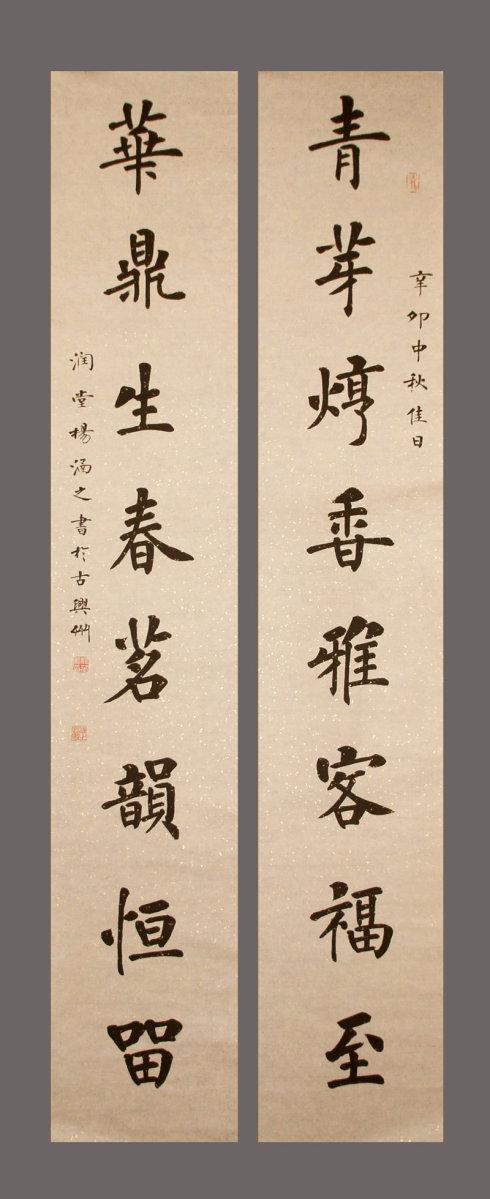 辛卯中秋佳日
青芽焞香雅客福至
華鼎生春茗韻恒留
润堂楊涵之書於古興州